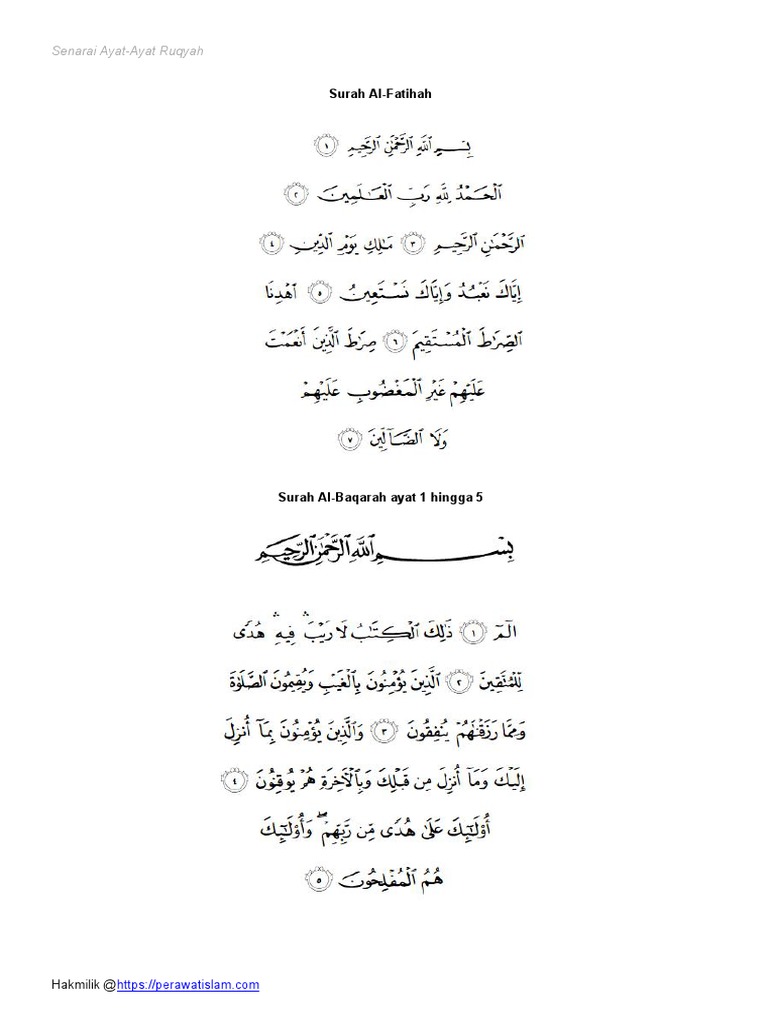 Senarai Ayat-Ayat Ruqyah
Surah Al-Fatihah
بِسْمِ ٱللَّهِ ٱلرَّحْمَٰنِ ٱلرَّحِيمِ ١
ٱلْحَمْدُ لِلَّهِ رَبِّ ٱلْعَٰلَمِينَ ٢
ٱلرَّحْمَٰنِ ٱلرَّحِيمِ ٣ مَٰلِكِ يَوْمِ ٱلدِّينِ ٤
إِيَّاكَ نَعْبُدُ وَإِيَّاكَ نَسْتَعِينُ ٥ ٱهْدِنَا
ٱلصِّرَٰطَ ٱلْمُسْتَقِيمَ ٦ صِرَٰطَ ٱلَّذِينَ أَنْعَمْتَ
عَلَيْهِمْ غَيْرِ ٱلْمَغْضُوبِ عَلَيْهِمْ
وَلَا ٱلضَّآلِّينَ ٧
Surah Al-Baqarah ayat 1 hingga 5
بِسْمِ ٱللَّهِ ٱلرَّحْمَٰنِ ٱلرَّحِيمِ
الٓمٓ ١ ذَٰلِكَ ٱلْكِتَٰبُ لَا رَيْبَ ۛ فِيهِ ۛ هُدًى
لِّلْمُتَّقِينَ ٢ ٱلَّذِينَ يُؤْمِنُونَ بِٱلْغَيْبِ وَيُقِيمُونَ ٱلصَّلَوٰةَ
وَمِمَّا رَزَقْنَٰهُمْ يُنفِقُونَ ٣ وَٱلَّذِينَ يُؤْمِنُونَ بِمَآ أُنزِلَ
إِلَيْكَ وَمَآ أُنزِلَ مِن قَبْلِكَ وَبِٱلْءَاخِرَةِ هُمْ يُوقِنُونَ ٤
أُو۟لَٰٓئِكَ عَلَىٰ هُدًى مِّن رَّبِّهِمْ ۖ وَأُو۟لَٰٓئِكَ
هُمُ ٱلْمُفْلِحُونَ ٥
Hakmilik @https://perawatislam.com